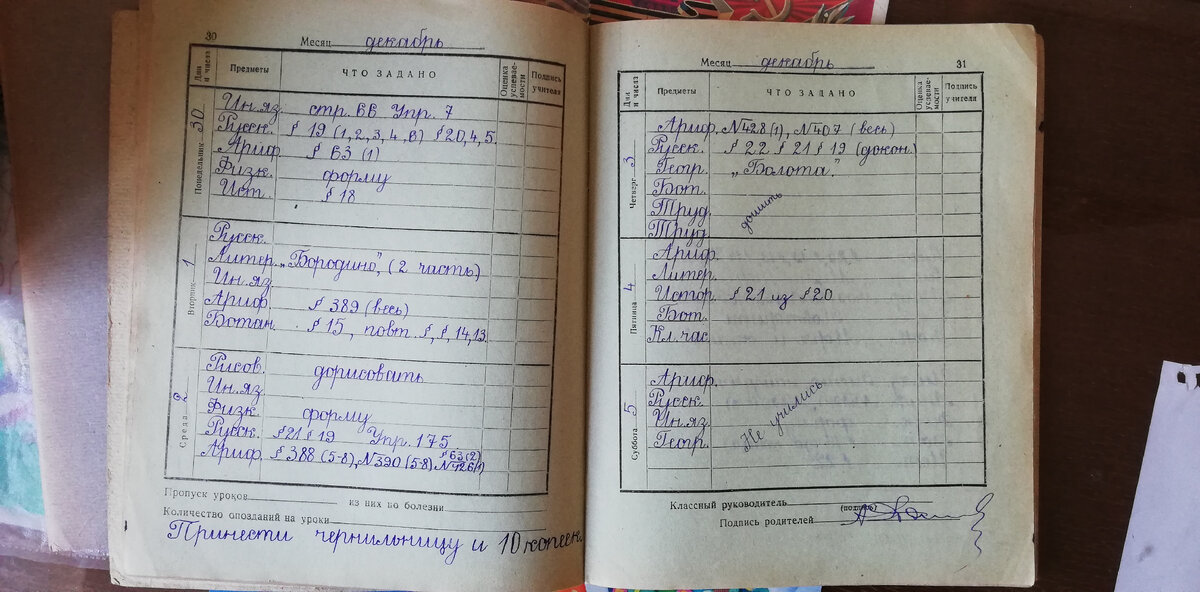 30 Месяц декабрь
Дни и числа Предметы ЧТО ЗАДАНО Оценка успевае-мости Подпись учителя
Понедельник 30
Ин.яз. стр. 66 Упр. 7
Русск. § 19 (1,2,3,4,6) § 20,4,5.
Ариф. § 63 (1)
Физк. форму
Ист. § 18
Вторник 1
Русск.
Литер. „Бородино", (2 часть)
Ин.яз.
Ариф. § 389 (весь)
Ботан. § 15, повт. §, §, 14,13.
Среда 2
Рисов. дорисовать
Ин.яз.
Физк форму
Русск. § 21 § 19 Упр. 175
§ 63 (2)
Ариф. § 388 (5-8), №390 (5-8) №426(1)
Пропуск уроков из них по болезни
Количество опозданий на уроки
Принести чернильницу и 10 копеек.
Месяц декабрь 31
Дни и числа Предметы ЧТО ЗАДАНО Оценка успевае-мости Подпись учителя
Четверг 3
Ариф. №428 (1), №407 (весь)
Русск. § 22 § 21 § 19 (докон.)
Геогр. „Болота".
Бот.
Труд. дошить
Труд.
Пятница 4
Ариф.
Литер.
Истор. § 21 из § 20
Бот.
Кл. час.
Суббота 5
Ариф.
Русск.
Ин.яз. Не учились
Геогр.
Классный руководитель
(подпись)
Подпись родителей